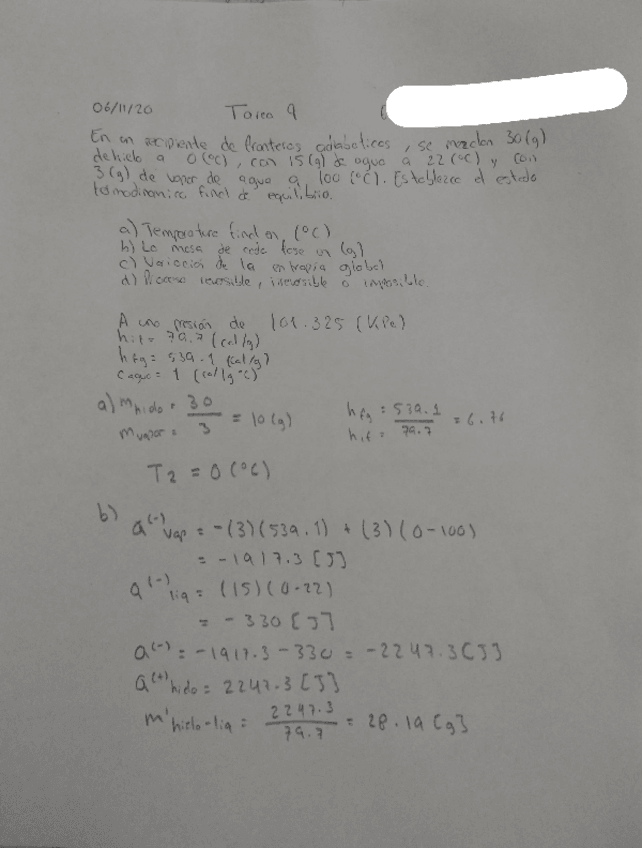 06/11/20 Tarea 9
En un recipiente de fronteras adiabaticas, se mezclan 30(g)
de hielo a 0(°C), con 15(g) de agua a 22(°C) y con
3(g) de vapor de agua a 100(°C). Establezca el estado
termodinamico final de equilibrio.
a) Temperatura final en (°C)
b) La masa de cada fase en (g)
c) Variacion de la entropia global
d) Proceso reversible, irreversible o imposible.
A una presión de 101.325 (KPa)
hif= 79.7 (cal/g)
hfg= 539.1 (cal/g)
cagua= 1 (cal/g°C)
a) mhielo = 30
mvapor = 3 = 10 (g)
hfg = 539.1
hif = 79.7 = 6.76
T2 = 0 (°C)
b)
Q(-)vap = -(3)(539.1) + (3)(0-100)
= -1917.3 [J]
Q(-)liq = (15)(0-22)
= -330 [J]
Q(-) = -1917.3 - 330 = -2247.3 [J]
Q(+)hielo = 2247.3 [J]
m'hielo-liq = 2247.3 / 79.7 = 28.19 [g]